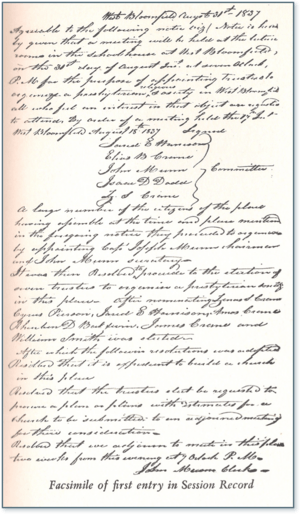 West Bloomfield Augst 31st, 1837
Agreable to the following notice viz/ Notice is here
by given that a meeting will be held at the lecture
rooms in the schoolhouse at West Bloomfield,
on the 31st day of August Inst at seven Oclock,
P.M for the purpose of appointing trustees to
organize a presbyterian religious society in West Bloomfield
all who feel an interest in that object are requested
to attend. By order of a meeting held the 17 Inst
West Bloomfield August 18th 1837 Signed
Jared E Harrison
Elias B Crane
John Munn
Isaac D Dodd
S Crane
Committee
A large number of the citizens of the place
having assembled at the time and place mentioned
in the foregoing notice they proceeded to organize
by appointing Cap Munn chairman
and John Munn secretary
It was then Resolved to proceede to the election of
seven trustees to organize a presbyterian society
in this place. After nominating Crane
Cyrus Pierson, Jared E Harrison, Amos Crane
D Baldwin, James Crane and
William Smith was elected
After which the following resolutions was adopted
Resolved that it is expedient to build a church
in this place
Resolved that the trustees elect be requested to
procure a plan or plans with estimates for a
church to be submitted to an adjourned meeting
for their consideration.
Resolved that we adjourn to meet in this place
two weeks from this evening at 7 Oclock P.M.
John Munn Clerk
Facsimile of first entry in Session Record